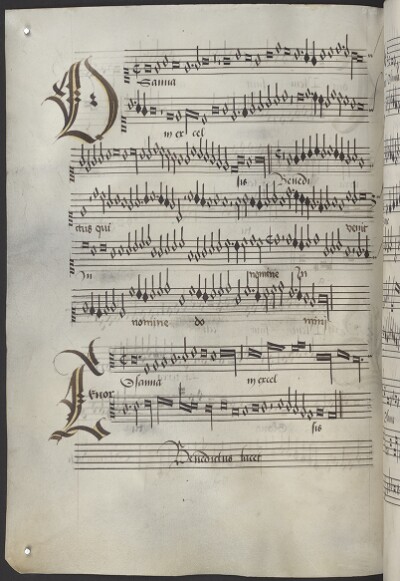 Osanna
in ex cel
sis Benedi
ctus qui venit
In nomine In
nomine do mini
Osanna in excel
Tenor
sis
Benedictus tacet